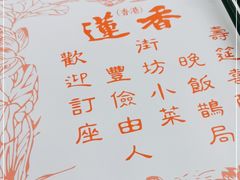 蓮香
(香港)
壽筵
晚飯鵲局
街坊小菜
豐儉由人
歡迎訂座